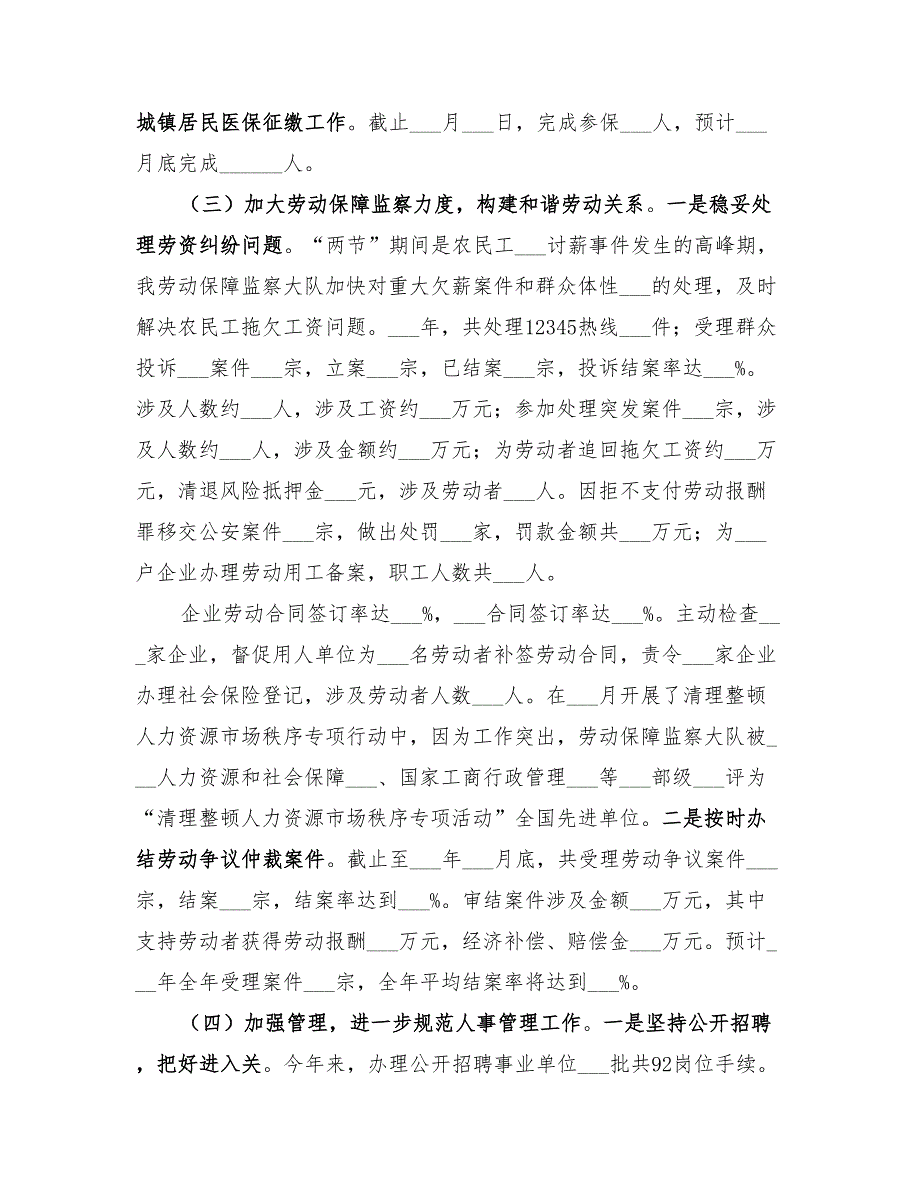 城镇居民医保征缴工作。截止___月___日，完成参保___人，预计___
月底完成______人。
（三）加大劳动保障监察力度，构建和谐劳动关系。一是稳妥处
理劳资纠纷问题。“两节”期间是农民工___讨薪事件发生的高峰期，
我劳动保障监察大队加快对重大欠薪案件和群众体性___的处理，及时
解决农民工拖欠工资问题。___年，共处理12345热线___件；受理群众
投诉___案件___宗，立案___宗，已结案___宗，投诉结案率达___%。
涉及人数约___人，涉及工资约___万元；参加处理突发案件___宗，涉
及人数约___人，涉及金额约___万元；为劳动者追回拖欠工资约___万
元，清退风险抵押金___元，涉及劳动者___人。因拒不支付劳动报酬
罪移交公安案件___宗，做出处罚___家，罚款金额共___万元；为___
户企业办理劳动用工备案，职工人数共___人。
企业劳动合同签订率达___%，___合同签订率达___%。主动检查__
_家企业，督促用人单位为___名劳动者补签劳动合同，责令___家企业
办理社会保险登记，涉及劳动者人数___人。在___月开展了清理整顿
人力资源市场秩序专项行动中，因为工作突出，劳动保障监察大队被_
__人力资源和社会保障___、国家工商行政管理___等___部级___评为
“清理整顿人力资源市场秩序专项活动”全国先进单位。二是按时办
结劳动争议仲裁案件。截止至___年___月底，共受理劳动争议案件___
宗，结案___宗，结案率达到___%。审结案件涉及金额___万元，其中
支持劳动者获得劳动报酬___万元，经济补偿、赔偿金___万元。预计_
__年全年受理案件___宗，全年平均结案率将达到___%。
（四）加强管理，进一步规范人事管理工作。一是坚持公开招聘
，把好进入关。今年来，办理公开招聘事业单位___批共92岗位手续。